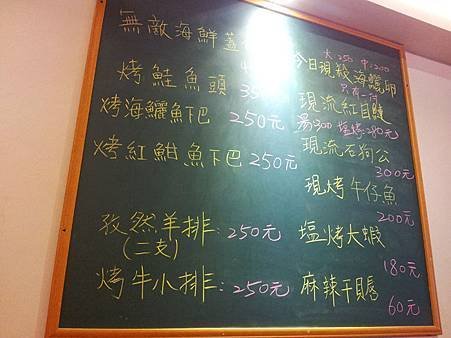 無敵海鮮蓋
烤鮭魚頭 35
烤海鱺魚下巴 250元
烤紅魽魚下巴 250元
孜然羊排:250元
(二支)
烤牛小排:250元
大250 中200
今日現殺海鱺卵
只有一份
現流紅目鰱
湯300 鹽烤280元
現流石狗公
300元
現烤午仔魚
200元
塩烤大蝦
180元
麻辣干貝唇
60元